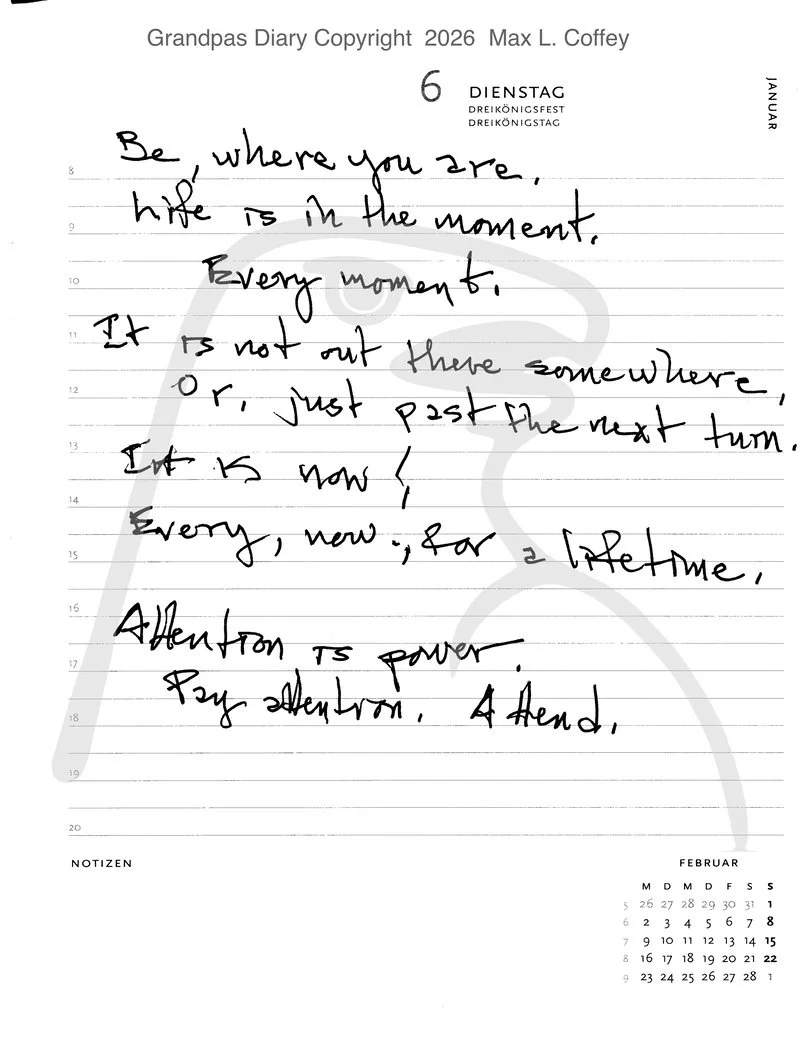 Grandpas Diary Copyright 2026 Max L. Coffey
6 DIENSTAG
DREIKÖNIGSFEST
DREIKÖNIGSTAG
JANUAR
Be, where you are.
8
Life is in the moment.
9
Every moment.
10
It is not out there somewhere,
11
Or, just past the next turn.
12
13
It is now!
14
Every, now., for a lifetime.
15
16
Attention is power.
17
Pay attention. Attend.
18
19
20
NOTIZEN
FEBRUAR
M D M D F S S
5 26 27 28 29 30 31 1
6 2 3 4 5 6 7 8
7 9 10 11 12 13 14 15
8 16 17 18 19 20 21 22
9 23 24 25 26 27 28 1